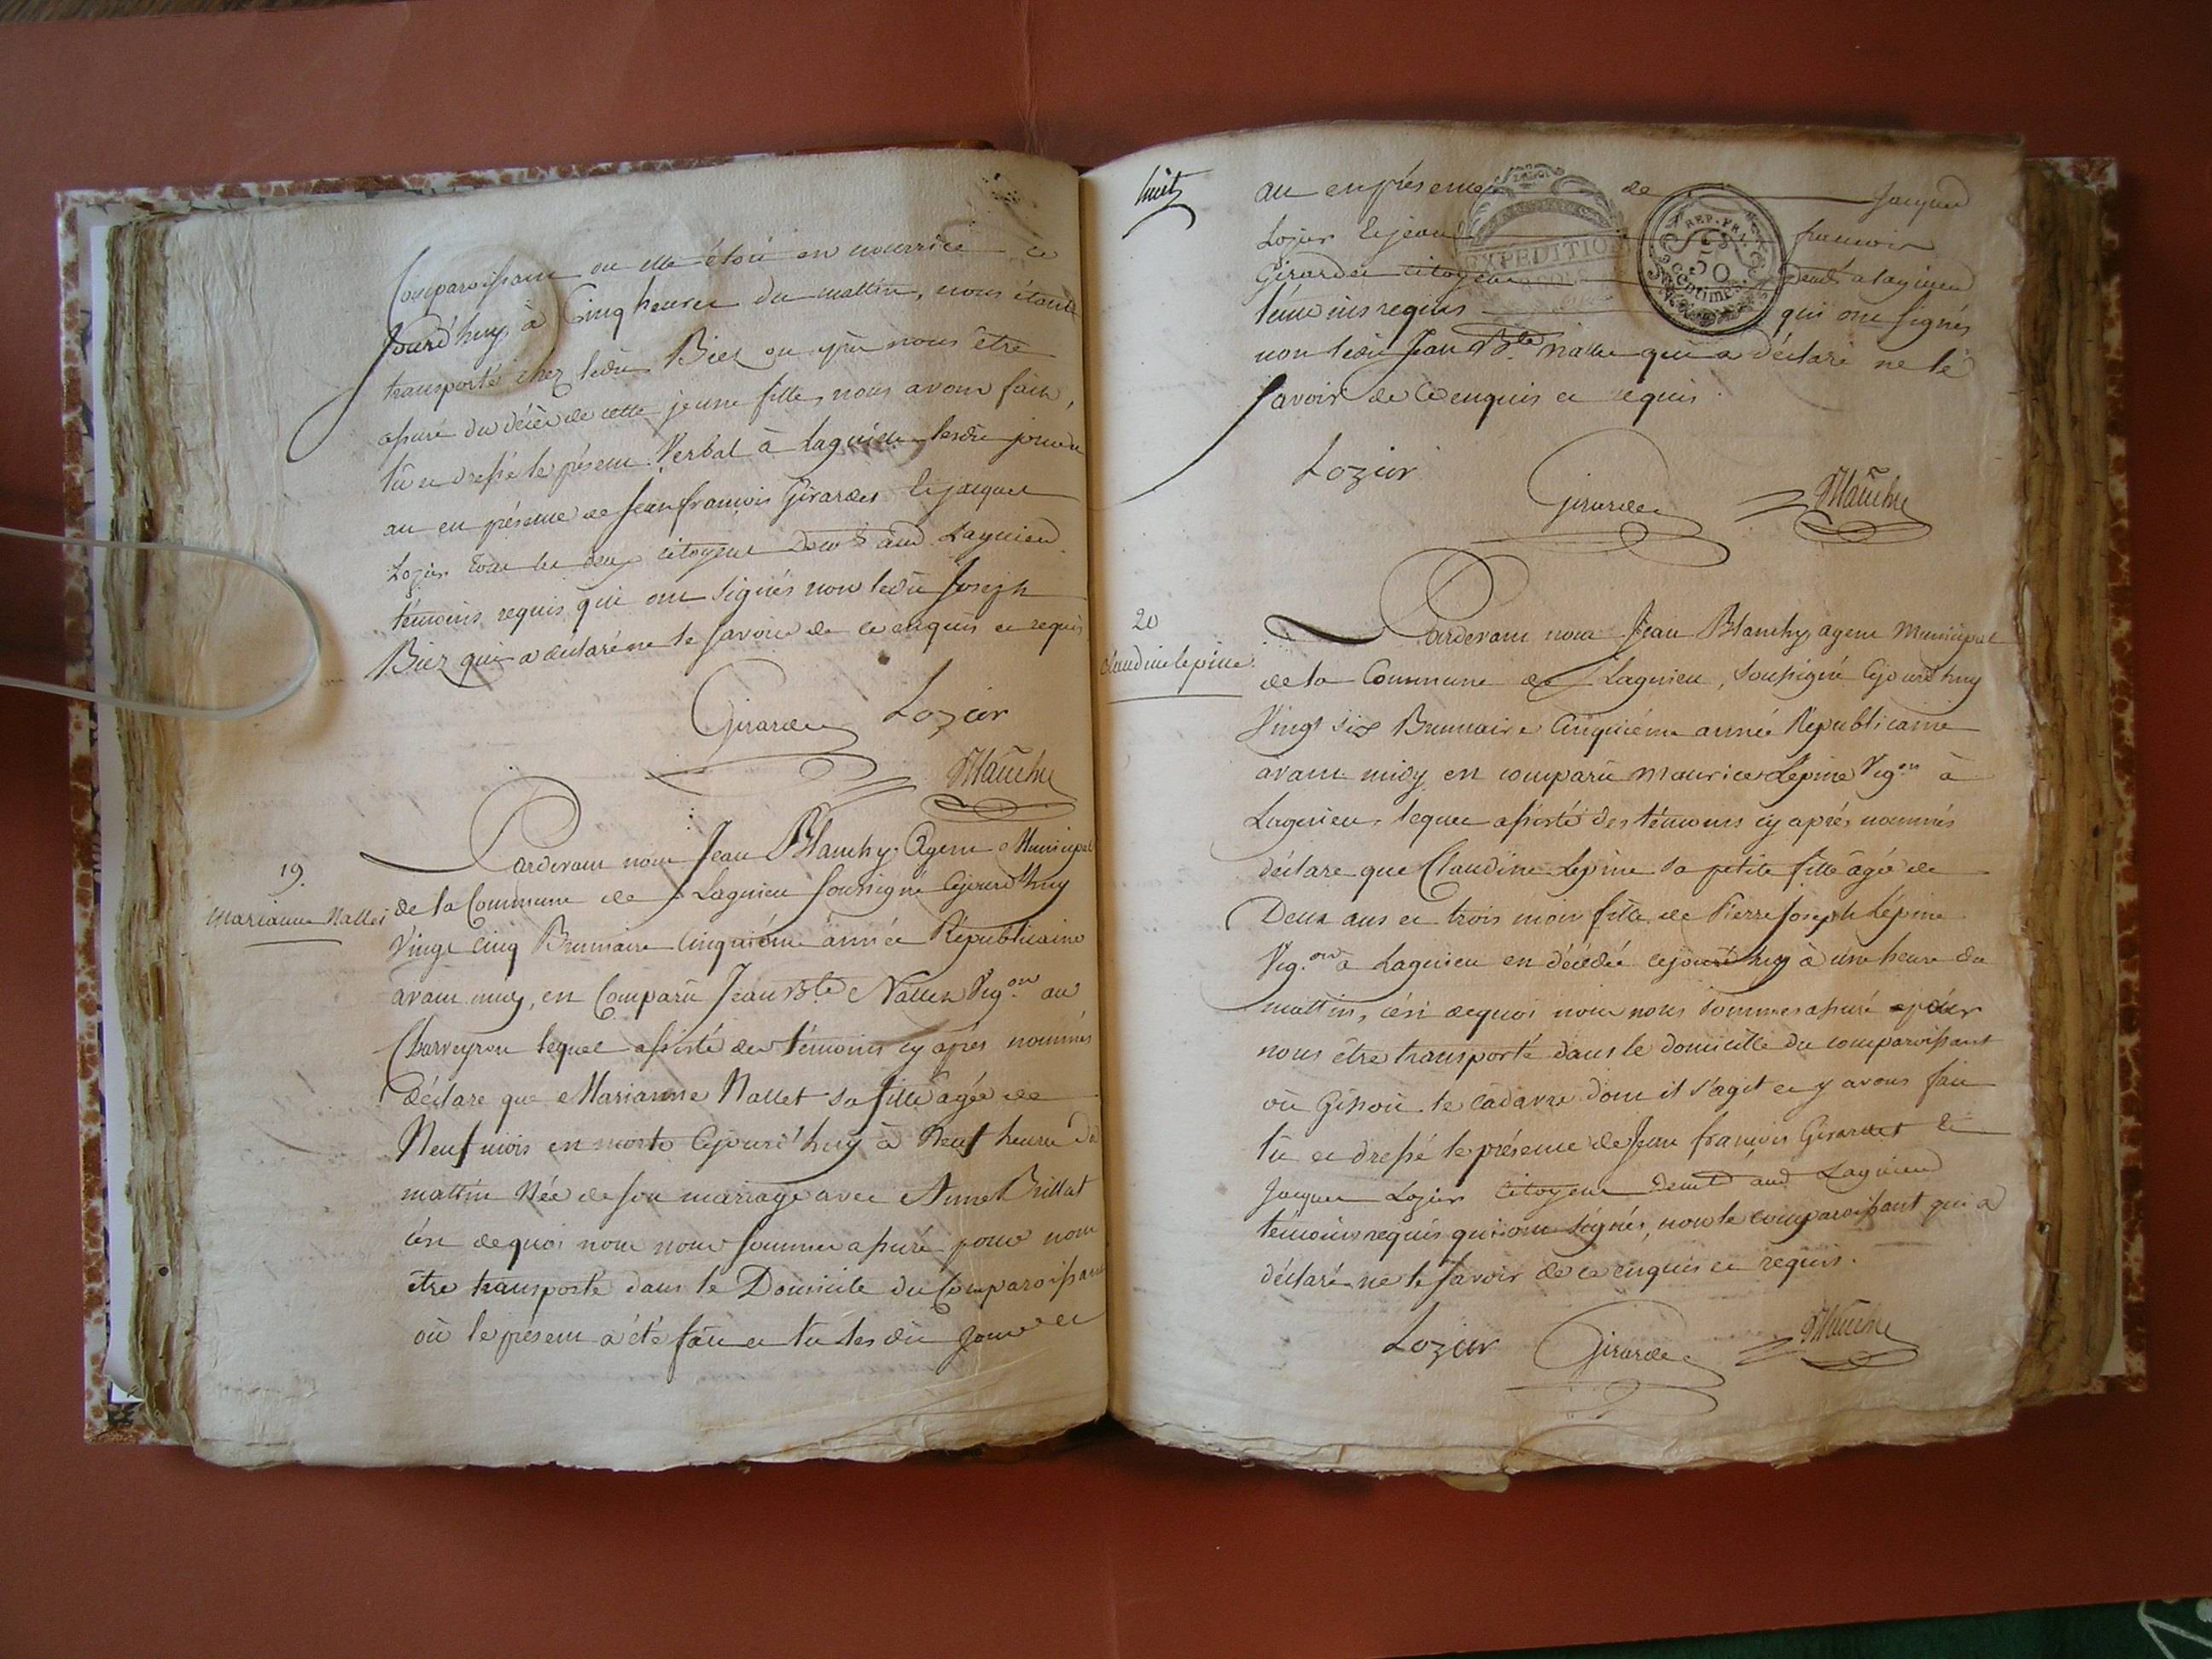 Comparoissant ou elle étoit en nourrice ce
Jourd'huy à Cinq heures du mattin, nous étant
transporté chez ledit Biez ou après nous être
assuré du décès de cette jeune fille, nous avons fait,
lû et dressé le présent Verbal à Lagnieu lesdit jour et
an en présence de Jean françois Girardet et jacques
Lozier tous les deux citoyens aud Lagnieu
témoins requis qui ont signés non ledit Joseph
Biez qui a déclaré ne le savoir de ce enquis et requis
Girardet Lozier
Blanchy
19.
Marianne Nallet
Pardevant nous Jean Blanchy Agent Municipal
de la Commune de Lagnieu soussigné Cejourd'huy
Vingt cinq Brumaire Cinquième année Républicaine
avant midy, en Comparü Jean Bte Nallet Vigon au
Charveyron lequel assisté des témoins cy après nommés
déclare que Marianne Nallet sa fille âgée de
Neuf mois en morte Cejourd'huy à Neuf heures du
mattin Née de son mariage avec Anne Brillat
c'est dequoi nous nous sommes assuré pour nous
être transporté dans le Domicile du Comparoissant
où le présent a été fait et lu lesdit Jour et
huit
an en présence de Jacques
Lozier et jean françois
Girardet citoyens a lagnieu
témoins requis qui ont signés
non ledit Jean Bte Nallet qui a déclaré ne le
savoir de Ce enquis et requis.
EXPEDITION
REP. FRA.
50
centimes
Lozier Girardet Blanchy
20
Claudine Lepine.
Pardevant nous Jean Blanchy agent Municipal
de la Commune de Lagnieu, soussigné Cejourd'huy
Vingt six Brumaire Cinquième année Républicaine
avant midy en comparü Maurice Lepine Vigon à
Lagnieu, lequel assisté des témoins cy après nommés
déclare que Claudine Lepine sa petite fille âgée de
Deux ans et trois mois fille de Pierre Joseph Lépine
Vig.on à Lagnieu en décédée cejourd'huy à une heure du
mattin, c'est dequoi nous nous sommes assuré pour
nous être transporté dans le domicille du comparoissant
où Gissoit le cadavre dont il s'agit et y avons fait
lu et dressé le présence de Jean françois Girardet et
Jacques Lozier Citoyens aud Lagnieu
témoins requis qui ont signés, non le comparoissant qui a
déclaré ne le savoir de ce enquis et requis.
Lozier Girardet Blanchy